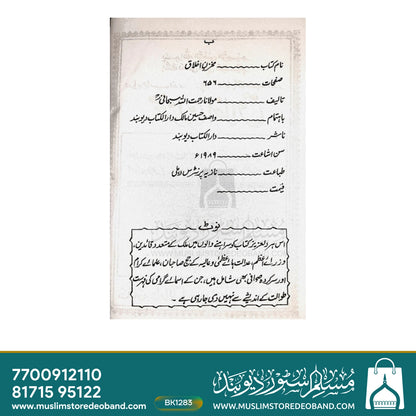 ب
نام کتاب ــــــــ مخزن اخلاق
صفحات ــــــــ ۶۵۶
تالیف ــــــــ مولانا رحمت اللہ سبحانی
باہتمام ــــــــ واصف حسین مالک دارالکتاب دیوبند
ناشر ــــــــ دارالکتاب دیوبند
سن اشاعت ــــــــ ۱۹۸۹ء
طباعت ــــــــ نازیہ پرنٹرس دہلی
قیمت ــــــــ
نوٹ
اس ہردلعزیز کتاب کو سراہنے والوں میں ملک کے متعدد قائدین،
وزرائے اعظم، عدالت ہائے عظمیٰ و عالیہ کے جج صاحبان، علمائے کرام
اور سرکردہ صحافی بھی شامل ہیں، جن کے اسمائے گرامی کی فہرست
طوالت کے اندیشے سے نہیں دی جارہی ہے۔
7700912110
81715 95122
www.muslimstoredeoband.com
BK1283
مسلم سٹور دیوبند
WWW.MUSLIMSTOREDEOBAND.COM